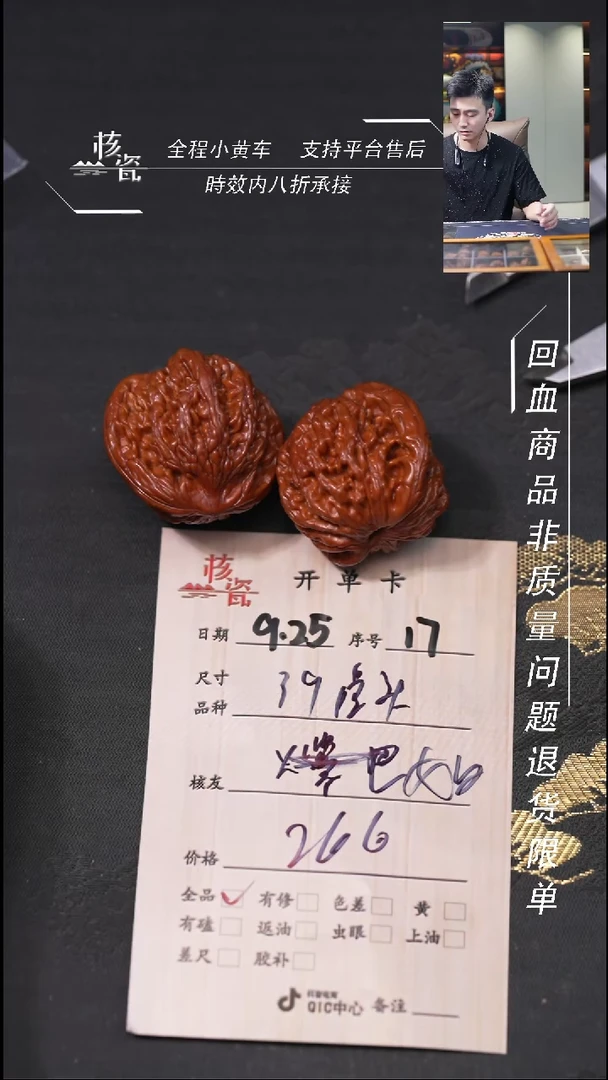 核瓷
全程小黄车 支持平台售后
時效内八折承接
回血商品非质量问题退货限单
核瓷
开单卡
日期 9.25 序号 17
尺寸
品种 39虎头
核友
价格 266
全品 有修 色差 黄
有磕 返油 虫眼 上油
差尺 胶补
抖音电商
QIC中心 备注